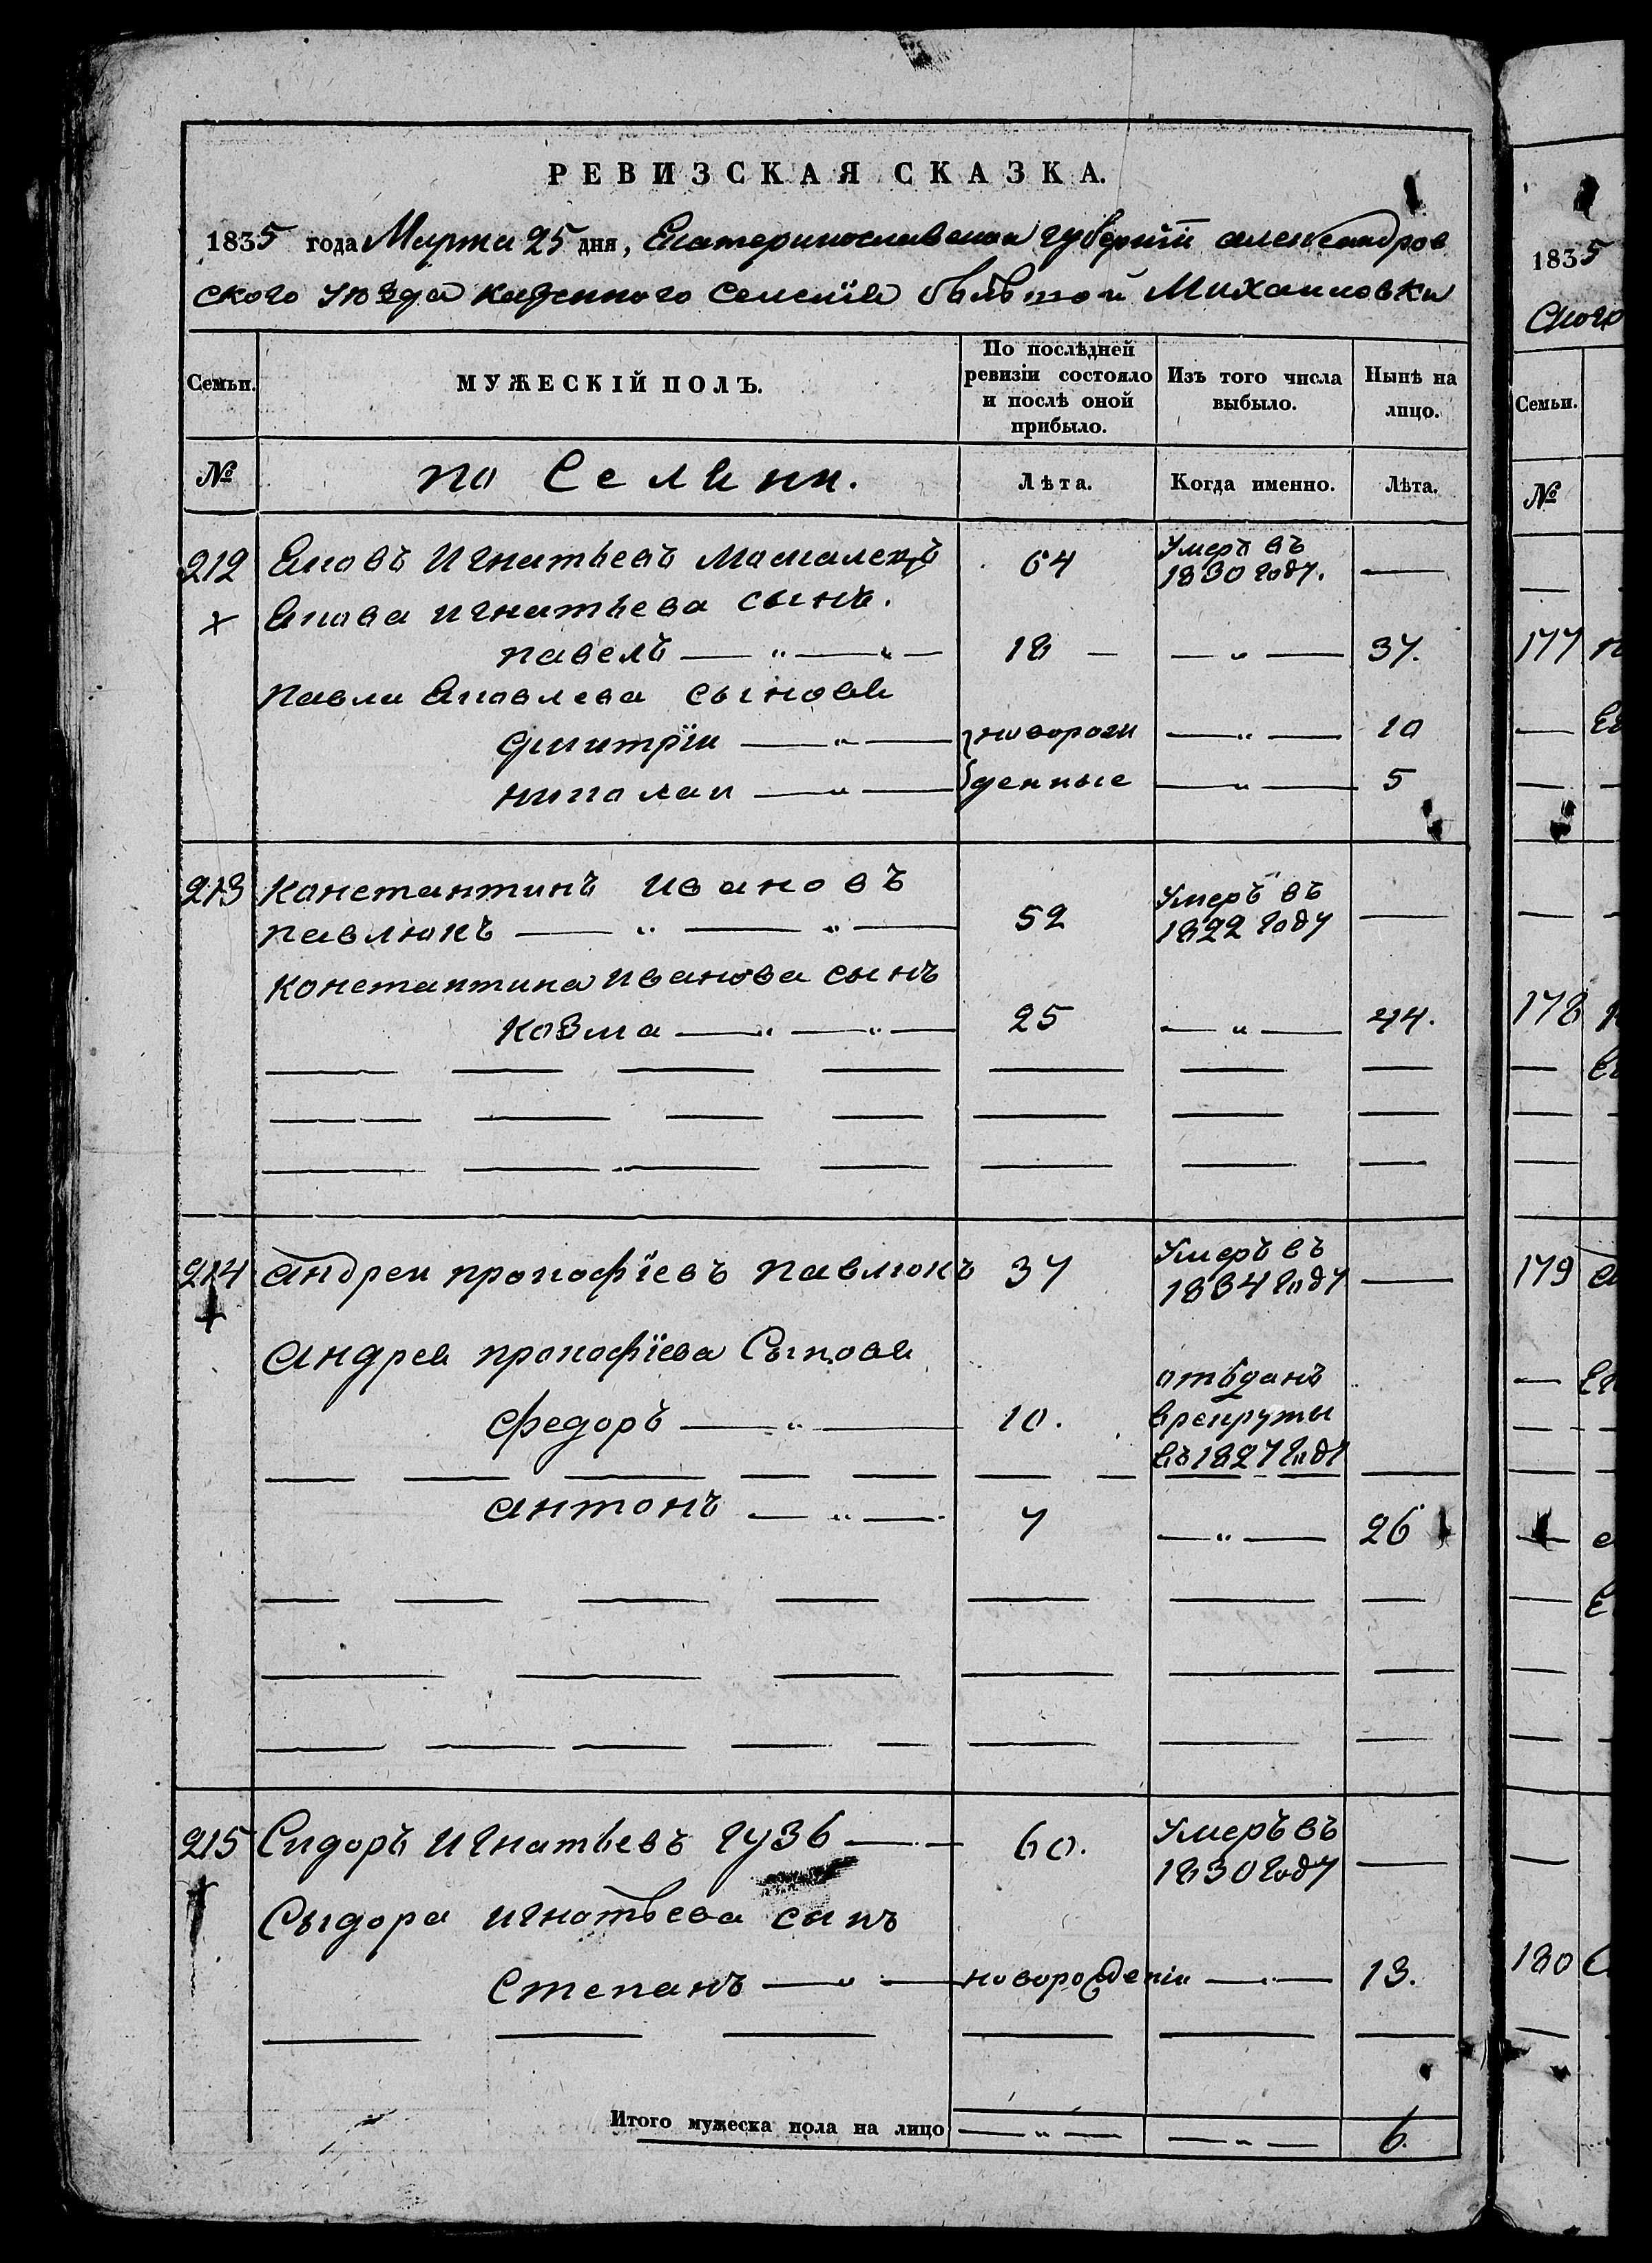 РЕВИЗСКАЯ СКАЗКА.
1835 года Марта 25 дня, Екатеринославской губерніи александров
ского уѣзда казенного Селенія Михаиловки
Семьи. МУЖЕСКІЙ ПОЛЪ. По послѣдней ревизіи состояло и послѣ оной прибыло. Изъ того числа выбыло. Нынѣ на лицо.
№ по Лѣта. Когда именно. Лѣта.
212 Яковъ Игнатьевъ 64 Умеръ въ 1830 году. —
Якова игнатьева сынъ.
павелъ — „ — „ — 18 — — „ — 37.
павла Яковлева сыновя
дмитрiи — „ — новорож — „ — 10
николаи — „ — денные — „ — 5
213 константинъ ивановъ
павлюкъ — „ — „ — 52 Умеръ въ 1822 году —
константина иванова сынъ
козма — „ — „ — 25 — „ — 44.
214 андреи прокофїевъ павлюкъ 37 Умеръ въ 1834 году —
андрея прокофїева Сынове
федоръ — „ — 10. отъданъ
врекруты
въ 1827 году
антонъ — „ — 7 — „ — 26
215 Сидоръ игнатьевъ гузь — 60. Умеръ въ 1830 году —
Сыдора игнатьева сынъ
степанъ — „ — новорожденiи — „ — 13.
Итого мужеска пола на лицо — „ — — „ — 6.
1835
Ского
Семьи.
№
177
178
179
180